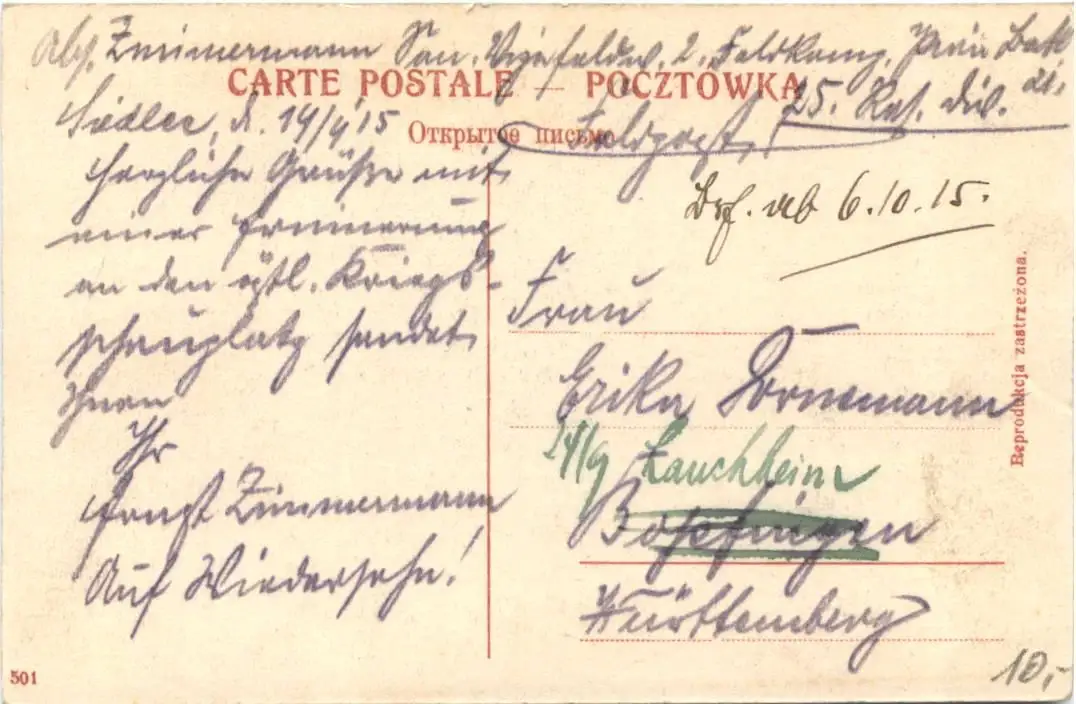 Abs. Zimmermann San. Vizefeldw. 2. Feldkomp. Pion. Batl.
CARTE POSTALE — POCZTÓWKA
25. Res. Div.
Siedlec, d. 14/9 15
Открытое письмо
Feldpost
Herzliche Grüße mit
einer Erinnerung
an den östl. Kriegs-
schauplatz sendet
Ihnen
Ihr
Ernst Zimmermann
Auf Wiedersehn!
6.10.15.
Frau
Erika Dornemann
14/9 Lauchheim
Bopfingen
Württemberg
Reprodukcja zastrzeżona.
501
10,-